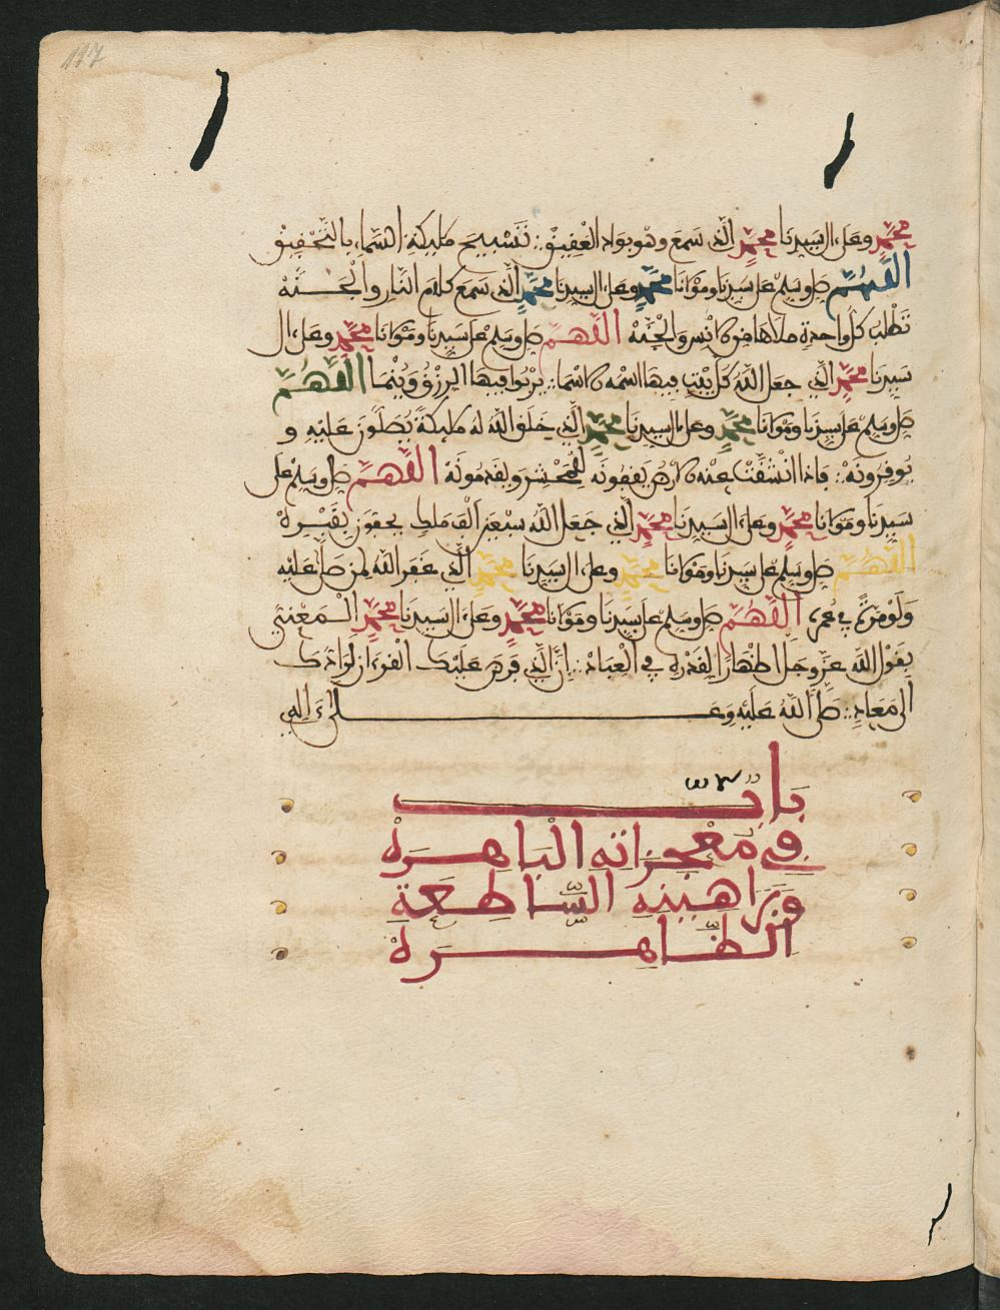 117
محمد وعلى ال سيدنا محمد الذي سمع وهو بواد العقيق تسبيح مليكة السماء بالتحقيق
اللهم صل وسلم على سيدنا ومولانا محمد وعلى ال سيدنا محمد الذي سمع كلام النار والجنة
تطلب كل واحدة ملاها من الانس والجنة اللهم صل وسلم على سيدنا ومولانا محمد وعلى ال
سيدنا محمد الذي جعل الله كل بيت فيها اسمه من الاسما يربوا فيها الرزق وينما اللهم
صل وسلم على سيدنا ومولانا محمد وعلى ال سيدنا محمد الذي خلق الله له مليكة يصلون عليه و
يوفرونه فاذا انشقت عنه الارض يقفونه للمحشر ويقدمونه اللهم صل وسلم على
سيدنا ومولانا محمد وعلى ال سيدنا محمد الذي جعل الله سبعين الف ملك يحفون بقبره
اللهم صل وسلم على سيدنا ومولانا محمد وعلى ال سيدنا محمد الذي غفر الله لمن صلى عليه
ولو مرة في عمره اللهم صل وسلم على سيدنا ومولانا محمد وعلى ال سيدنا محمد المعتني
بقول الله عز وجل اظهارا لقدره في العباد ان الذي فرض عليك القرءان لرادك
الى معاد صلى الله عليه وعلىءاله
باب
في معجزاته الباهره
وبراهينه الساطعة
الظاهره